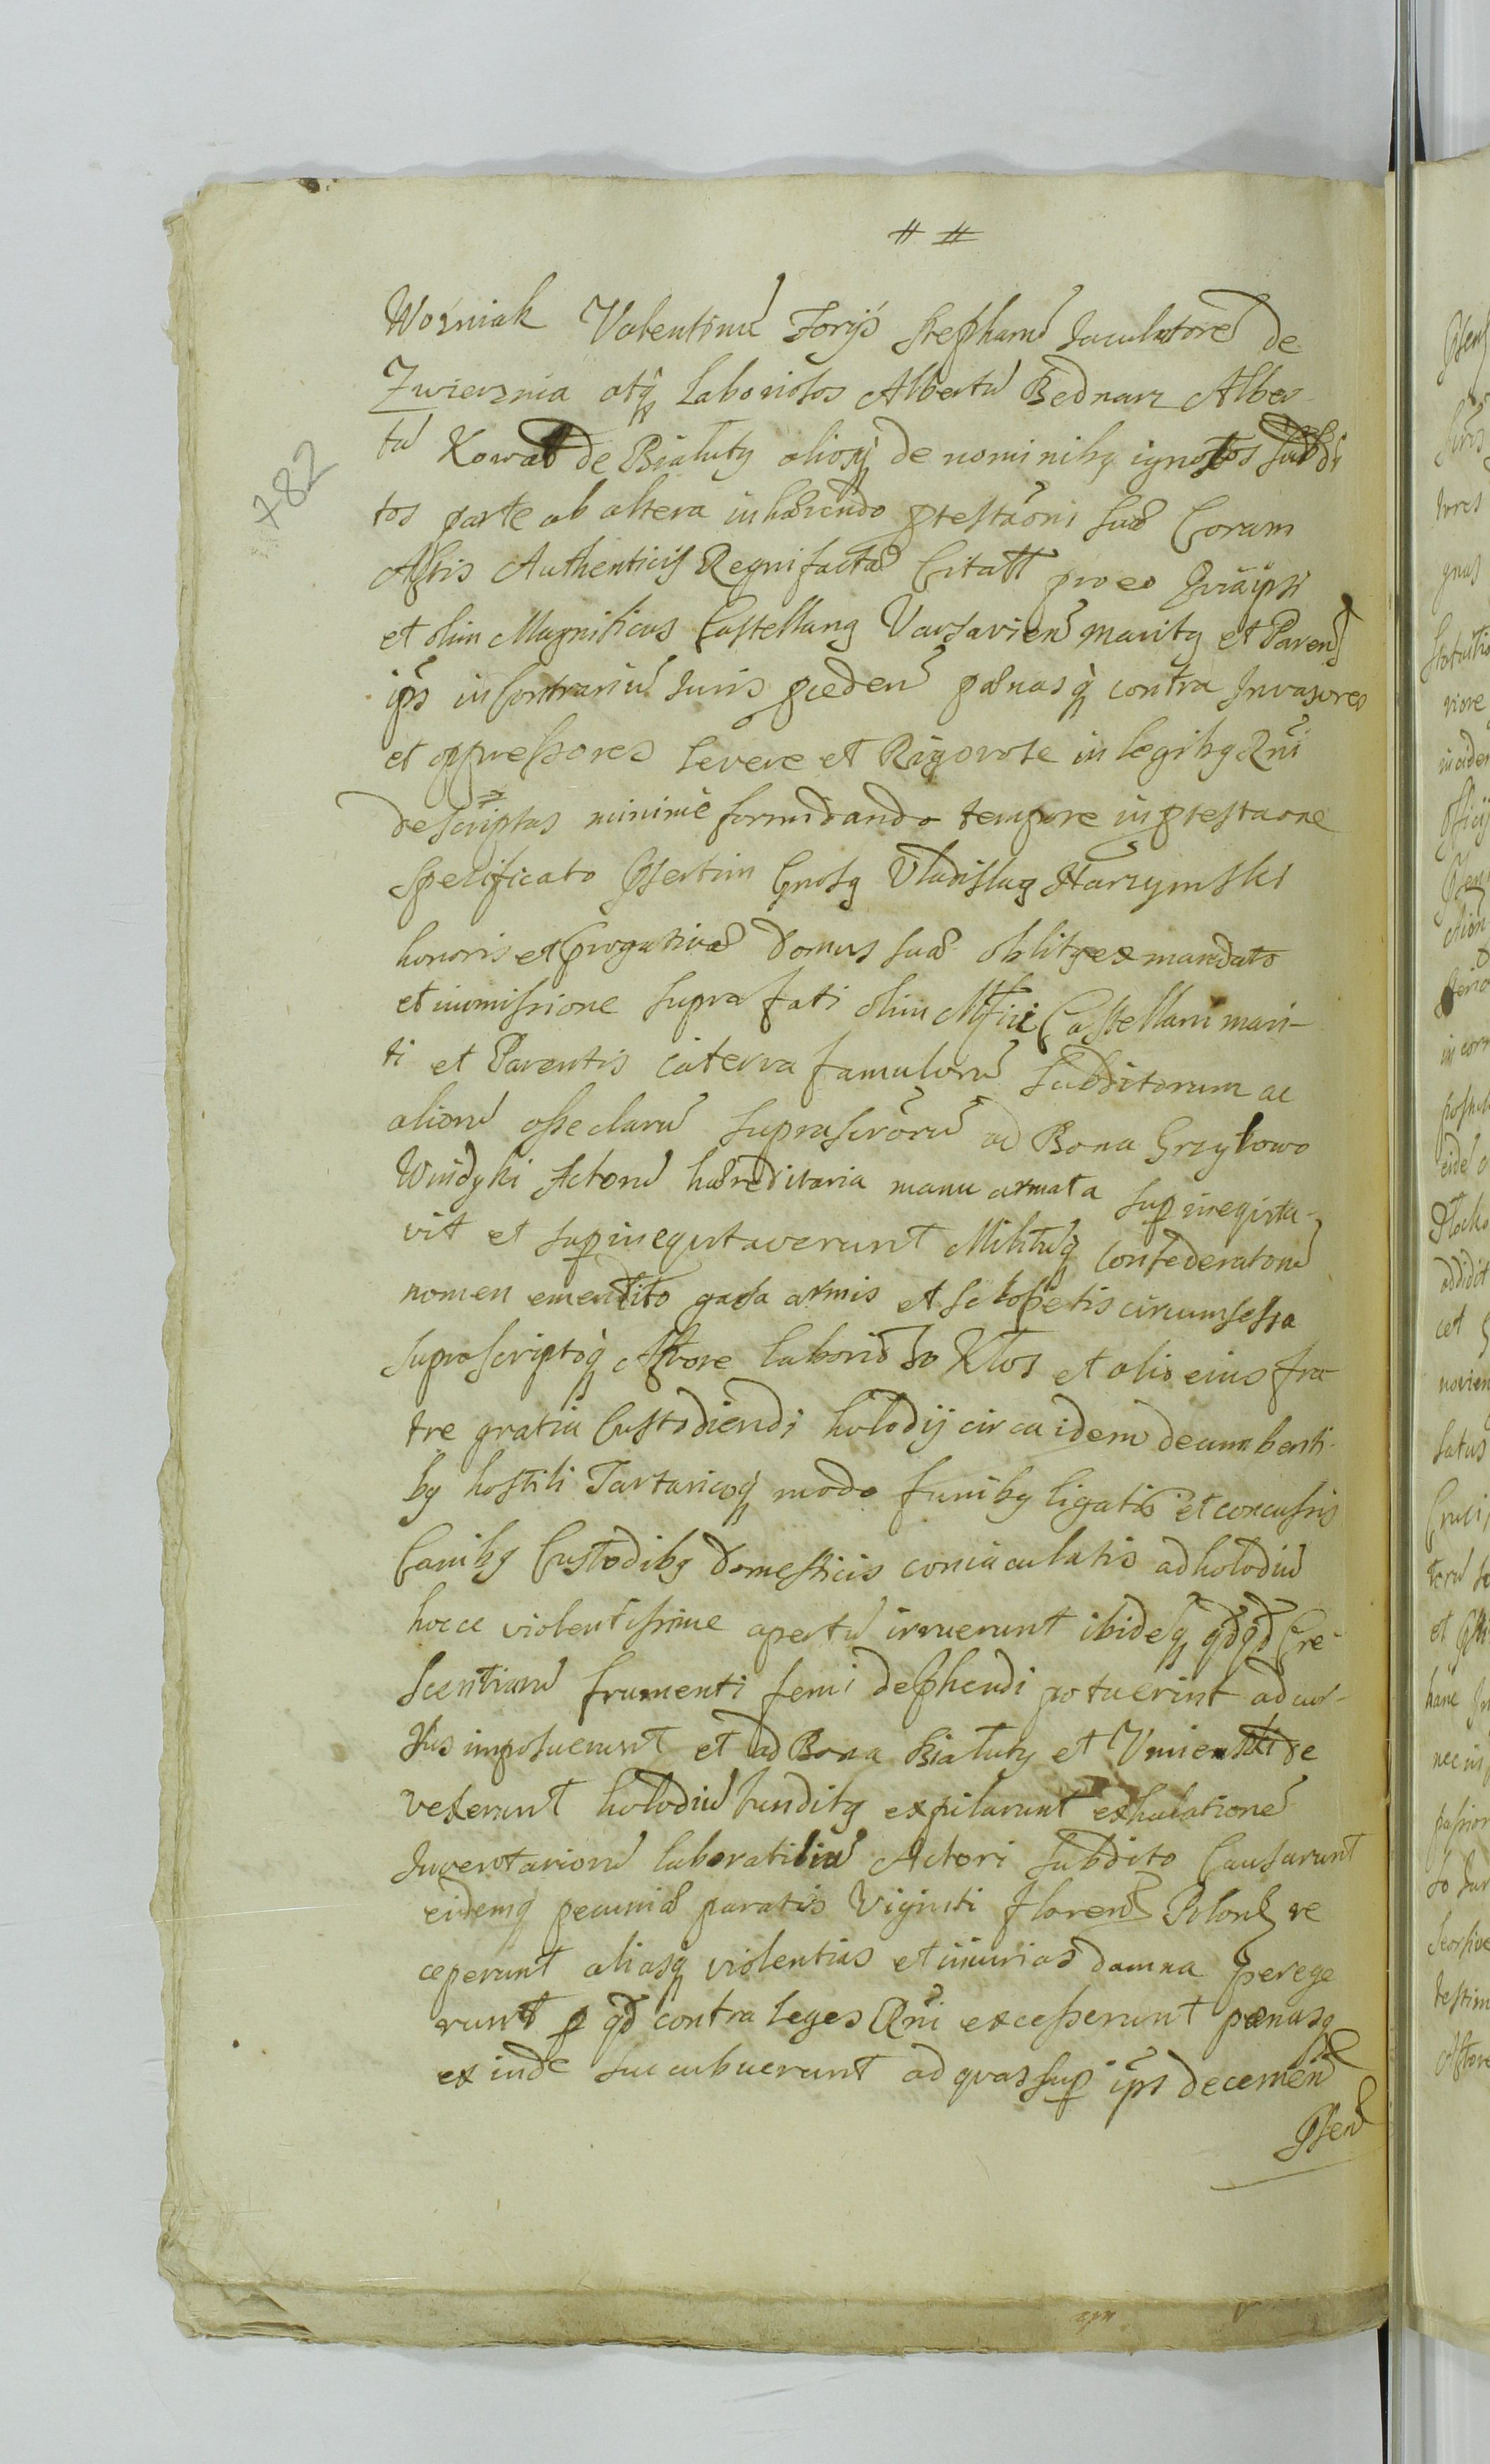 # #
782
Woźniak Valentinũ Forys Stephanũ Jaculatorẽ de
Zwierznia atq Laboriosos Albertũ Bednarz Alber-
tũ Kowal de Białuty aliosq de nominibg ignotos subdi
tos parte ab altera inhærendo ptestãoni suæ Coram
Actis Authenticis Regni factæ Citatt pro eo Quia ipsi
et olim Magnificus Castellang Varsavien maritg et Parens
ips in contrariũ Juris pceden pœnasq contra Invasores
et oppressores severe et Rigorose in legibg Rni
descriptas minime formidando tempore in ptestaone
specificato Psertim Gnosg Vladislag Starzymski
honoris et progativæ domus suæ oblitg ex mandato
et immissione supra fati olim Mfici Castellani mari-
ti et Parentis caterva famulorũ subditorum ac
aliorũ asseclarũ suprascrõrũ ad Bona Grzybowo
Windyki Actorũ hæreditaria manu armata supinequita-
vit et supinequitaverunt Militũq confederatorũ
nomen ementito gaza armis et sclopetis circumsessa
suprascriptoq Actore laborioso Kłos et alio eius fra
tre gratia Custodiendi holodij circa idem decumbenti-
bg hostili Tartaricoq modo funibg ligatis et concussis
Canibg Custodibg domesticis coniaculatis ad holodiũ
hocce violentissime apertũ irruerunt ibideq qdqd Cre-
scentiarũ frumenti femi dephendi potuerint ad cur-
rus imposuerunt et ad Bona Białuty et Umienski de
vexerunt holodiũ funditg expilarunt exhalationẽ
Inventariorũ laboratiliũ Actori subdito Causarunt
eidemq pecuniæ paratis Viginti floren Polon re
ceperunt aliasq violentias et iniurias damna perege
runt p qd contra leges Rni excesserunt pœnasq
ex inde succubuerunt ad quas sup ips decernen
Psen